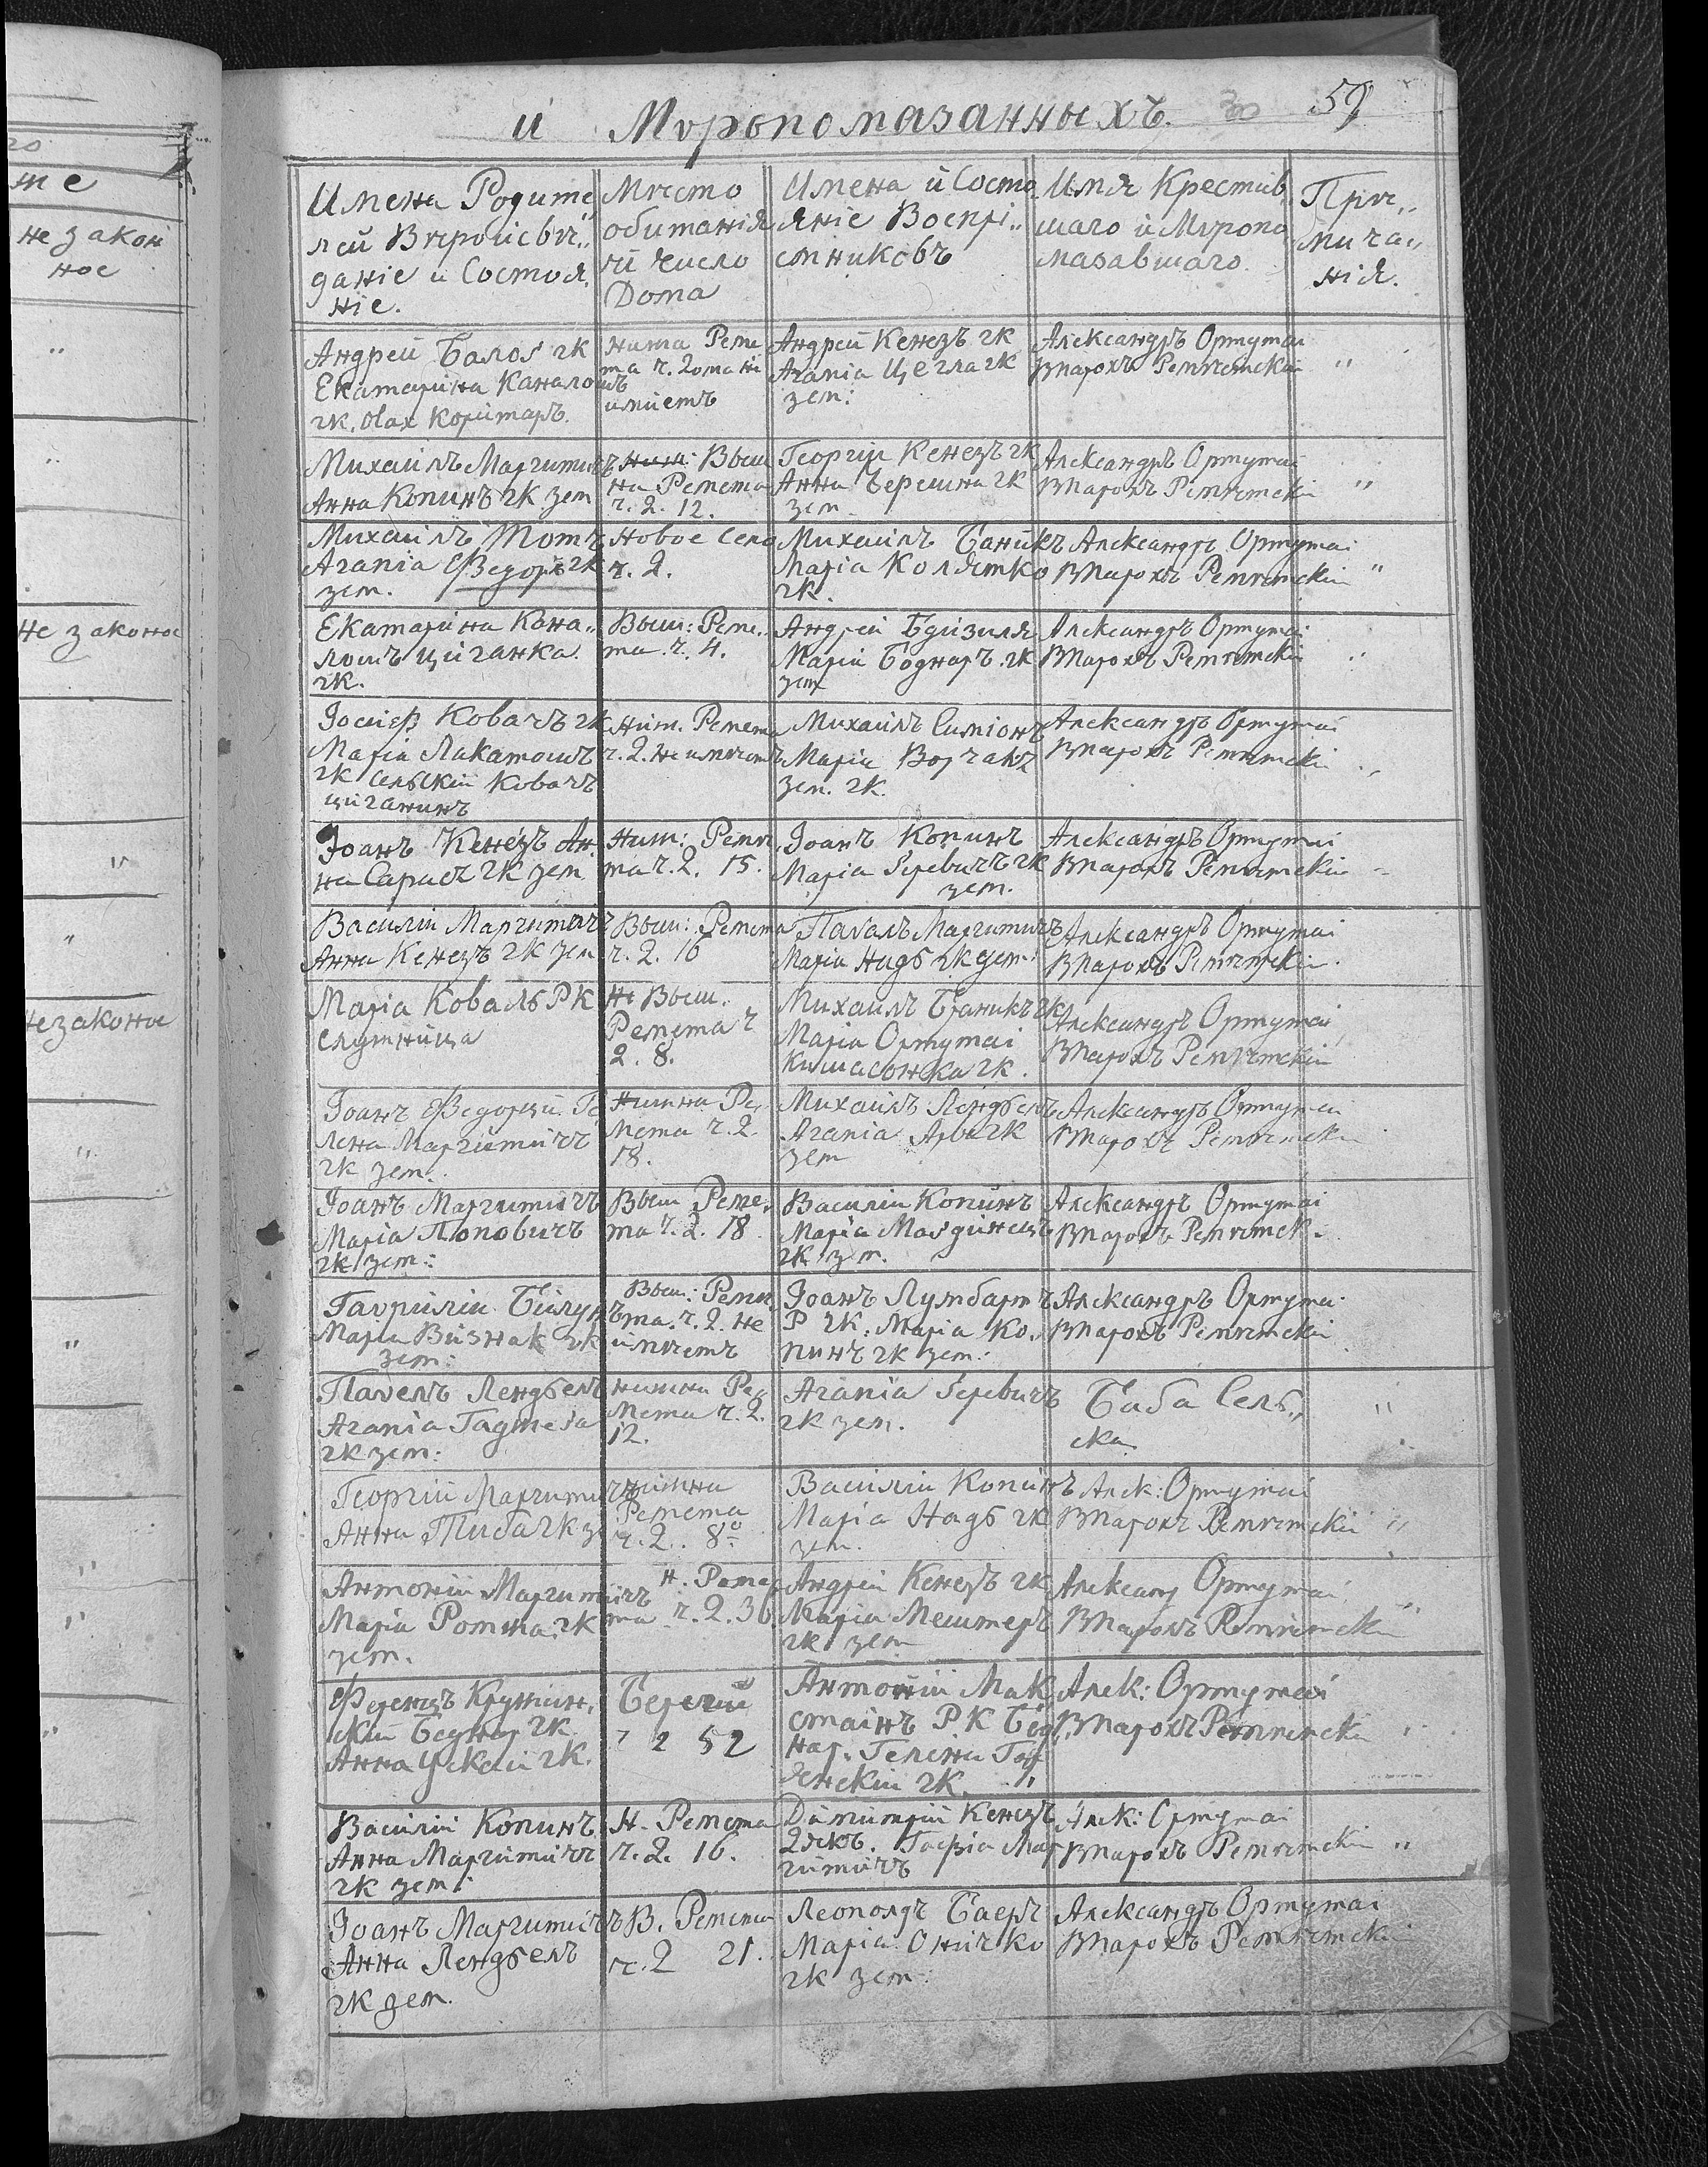 го
же
не закон
ное
не законое
незаконое
и Мѵропомазанныхъ. 30 59
Имена Родите,,
лей Вѣроисвѣ,,
даніе и Состоя,
ніе.
Мѣсто
обитанія
и число
Дома
Имена и Состо,
яніе Воспрі,,
емниковъ
Имя Крестив,,
шаго и Мѵропо
мазавшаго.
При,,
мѣча,,
нія.
Андрей Балог гк
Екатарина Канало
гк. Olax Коритаръ.
Нижна Реме
та ч. Дома не
имиетъ
Андрей Кенезъ гк
Агапіа Цегла гк
зем:
Александръ Ортутаи
Впарохъ Реметскіи
"
Михаилъ Маргитичъ
Анна Копинъ гк зем
Ниж: Выш
на Ремета
ч. Д. 12.
Георгіи Кенезъ гк
Анна Черешна гк
зем.
Александръ Ортутаи
Впарохъ Реметскіи
"
Михаилъ Тотъ
Агапіа Федоръ гк
зем.
Новое Село
ч. Д.
Михаилъ Баникъ
Маріа Колятко
гк.
Александръ Ортутаі
Впарохъ Реметскіи
"
Екатарина Кана..
лошъ циганка.
гк.
Выш: Реме..
та ч. 4.
Андреи
Маріа Боднаръ гк
зем
Александръ Ортутаі
Впарохъ Реметскіи
Іосиф Ковачъ гк
Маріа Лакатошъ
гк сельскіи ковачъ
циганинъ
Ниж. Ремета
ч. Д. не имѣетъ
Михаилъ Симіонъ
Маріа Ворчакъ
зем. гк.
Александръ Ортутаі
Впарохъ Реметскіи
Іоанъ Кенезъ Ан,
на гк зем
Ниж: Реме
та ч. Д. 15.
Іоанъ Копинъ
Маріа Геревичъ гк
зем.
Александръ Ортутаі
Впарохъ Реметскіи
Василіи Маргитичъ
Анна Кенезъ гк зем
Выш: Ремета
ч. Д. 16
Павалъ Маргитичъ
Маріа Надь гк зем:
Александръ Ортутаі
Впарохъ Реметскіи
Маріа Коваль РК
служница
Не Выш.
Ремета ч
Д. 8.
Михаилъ Браникъ гк
Маріа Ортутаі
гк.
Александръ Ортутаі
Впарохъ Реметскіи
Іоанъ Ге
лена Маргитичъ
гк зем:
Нижна Ре
мета ч. Д.
18.
Михаилъ Лендьелъ
Агапіа гк
зем
Александръ Ортутаі
Впарохъ Реметскіи
Іоанъ Маргитичъ
Маріа Поповичъ
гк зем:
Выш Реме,
та ч. Д. 18.
Василіи Копинъ
Маріа
гк зем.
Александръ Ортутаі
Впарохъ Реметск.
Гавриіліи
Маріа Визнак гк
зем:
Выш: Реме
та. ч. Д. не
имѣетъ
Іоанъ Лумбартъ
Р гк. Маріа Ко,
пинъ гк зем:
Александръ Ортутаі
Впарохъ Реметскіи
Павелъ Лендьелъ
Агапіа
гк зем:
нижна Ре,
мета ч. Д.
12.
Агапіа Геревичъ
гк зем.
Баба Сель,,
ска.
"
Георгіи Маргитичъ
Анна Тиба гк з
нижна
Ремета
ч. Д. 8
Василіи Копинъ
Маріа Надь гк
зем.
Алек: Ортутаі
Впарохъ Реметскіи
"
Антоніи Маргитичъ
Маріа гк
зем.
Н. Реме,
та ч. Д. 36.
Андреи Кенезъ гк
Маріа Мештеръ
гк зем
Александ Ортутаі
Впарохъ Реметскіи
Ференцъ
Беднар гк
Анна гк.
Береги
ч Д 52
Антоніи Мак
РК Бед,
нар. Гелена
гк.
Алек: Ортутаі
Впарохъ Реметскіи
Василіи Копинъ
Анна Маргитичъ
гк зем:
Н. Ремета
ч. Д. 16.
Димитріи Кенезъ
Дякъ. Мар
гитичъ
Алек: Ортутаі
Впарохъ Реметскіи
"
Іоанъ Маргитичъ
Анна Лендьелъ
гк зем.
В. Ремета
ч. Д 21.
Леополдъ Баеръ
Маріа Оничко
гк зем:
Александръ Ортутаі
Впарохъ Реметскіи